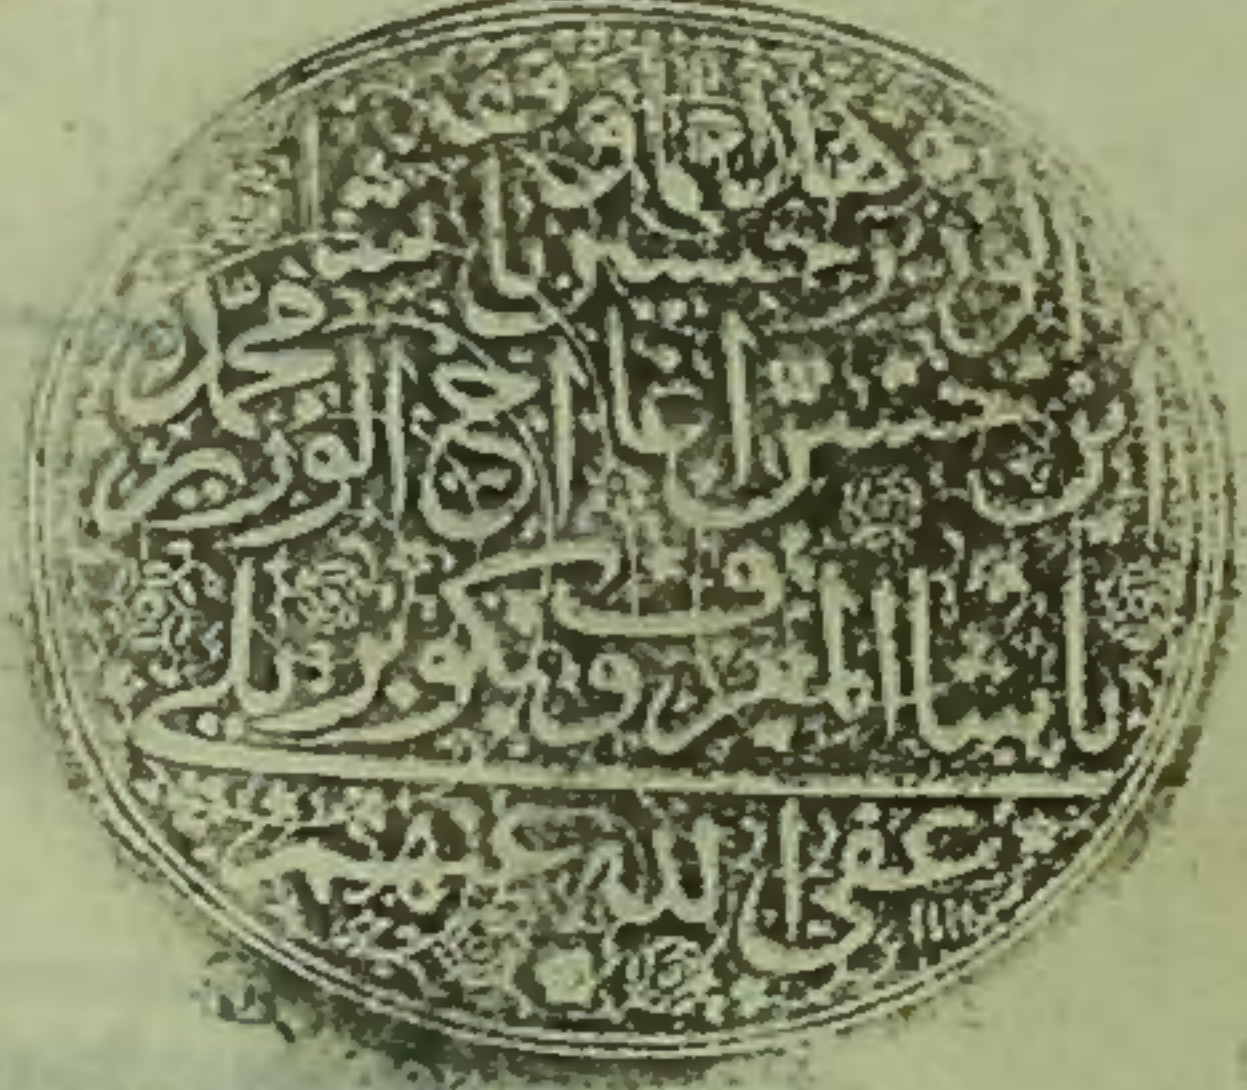 ما وقفه
الوزير حسين باشا
بن حسن اغا اخ الوزير محمد
باشا المعروف بكوپريلي
عفى الله عنهم